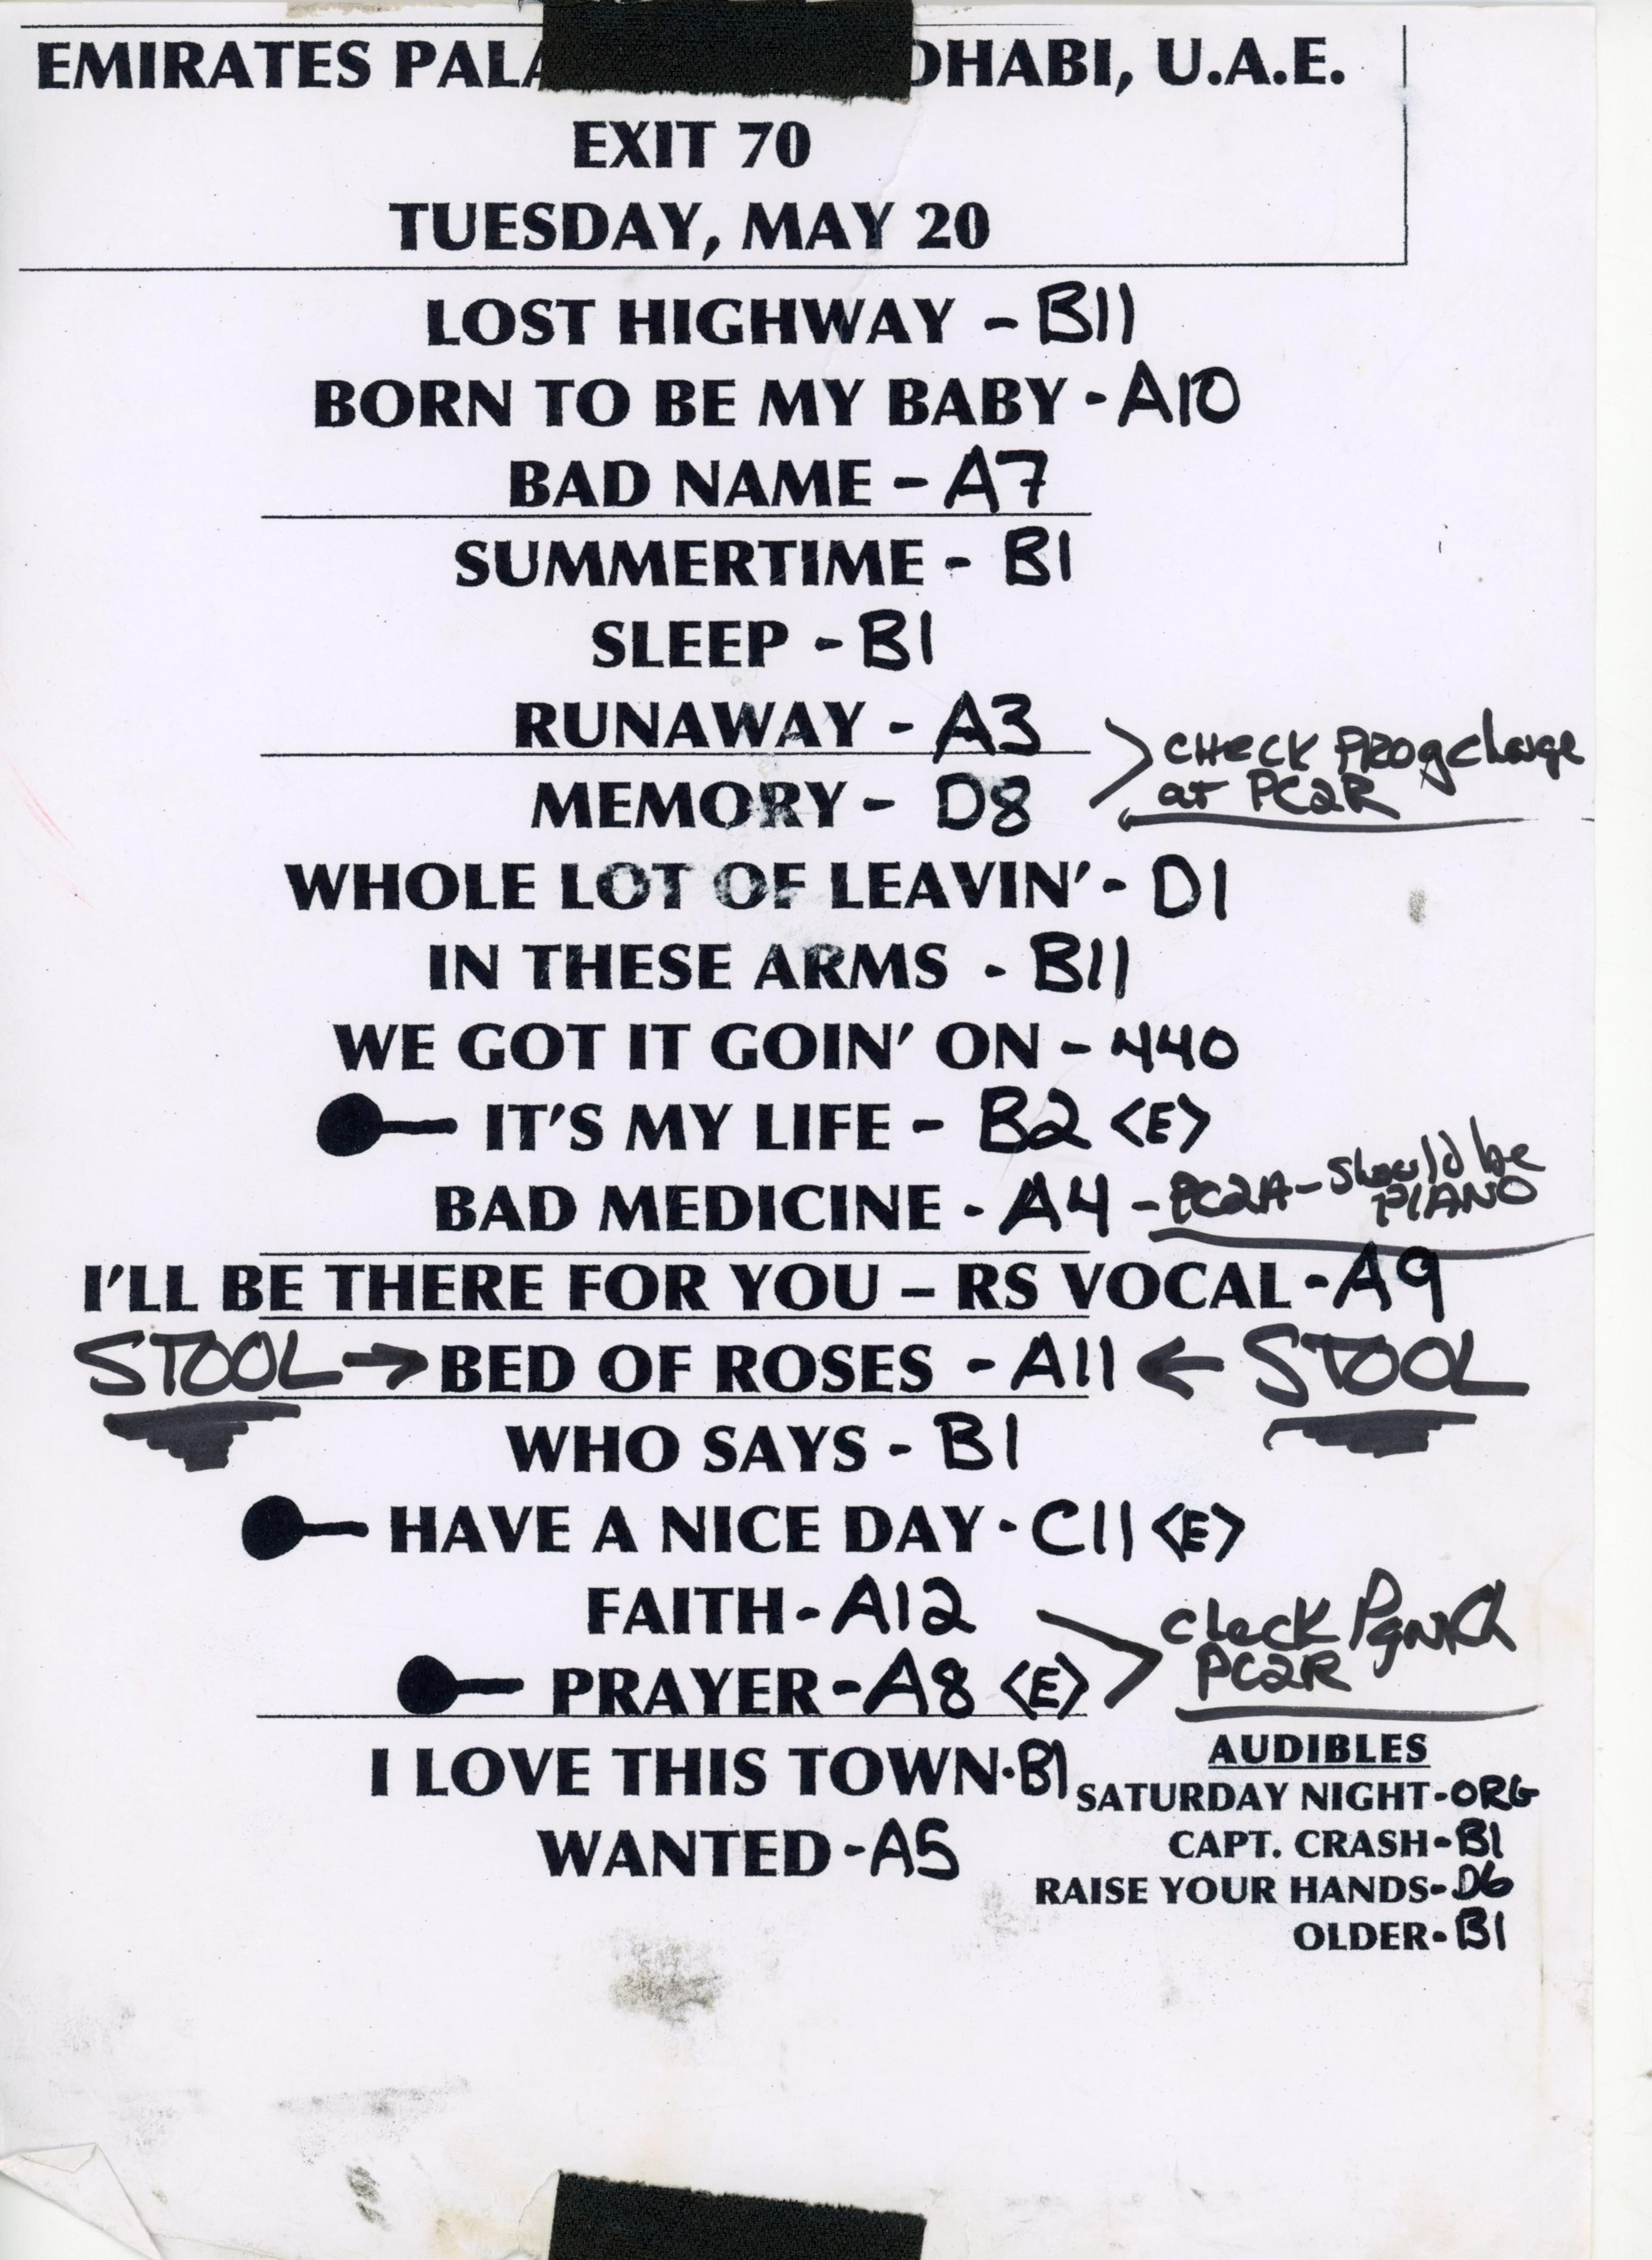 EMIRATES PALA DHABI, U.A.E.
EXIT 70
TUESDAY, MAY 20
LOST HIGHWAY - B11
BORN TO BE MY BABY - A10
BAD NAME - A7
SUMMERTIME - B1
SLEEP - B1
RUNAWAY - A3
CHECK PROgchange
at PC2R
MEMORY - D8
WHOLE LOT OF LEAVIN' - D1
IN THESE ARMS - B11
WE GOT IT GOIN' ON - 440
IT'S MY LIFE - B2 <E>
BAD MEDICINE - A4 - PC2A - should be
PIANO
I'LL BE THERE FOR YOU – RS VOCAL - A9
STOOL → BED OF ROSES - A11 ← STOOL
WHO SAYS - B1
HAVE A NICE DAY - C11 <E>
FAITH - A12
check
PC2R
PRAYER - A8 <E>
I LOVE THIS TOWN - B1
WANTED - A5
AUDIBLES
SATURDAY NIGHT - ORG
CAPT. CRASH - B1
RAISE YOUR HANDS - D6
OLDER - B1